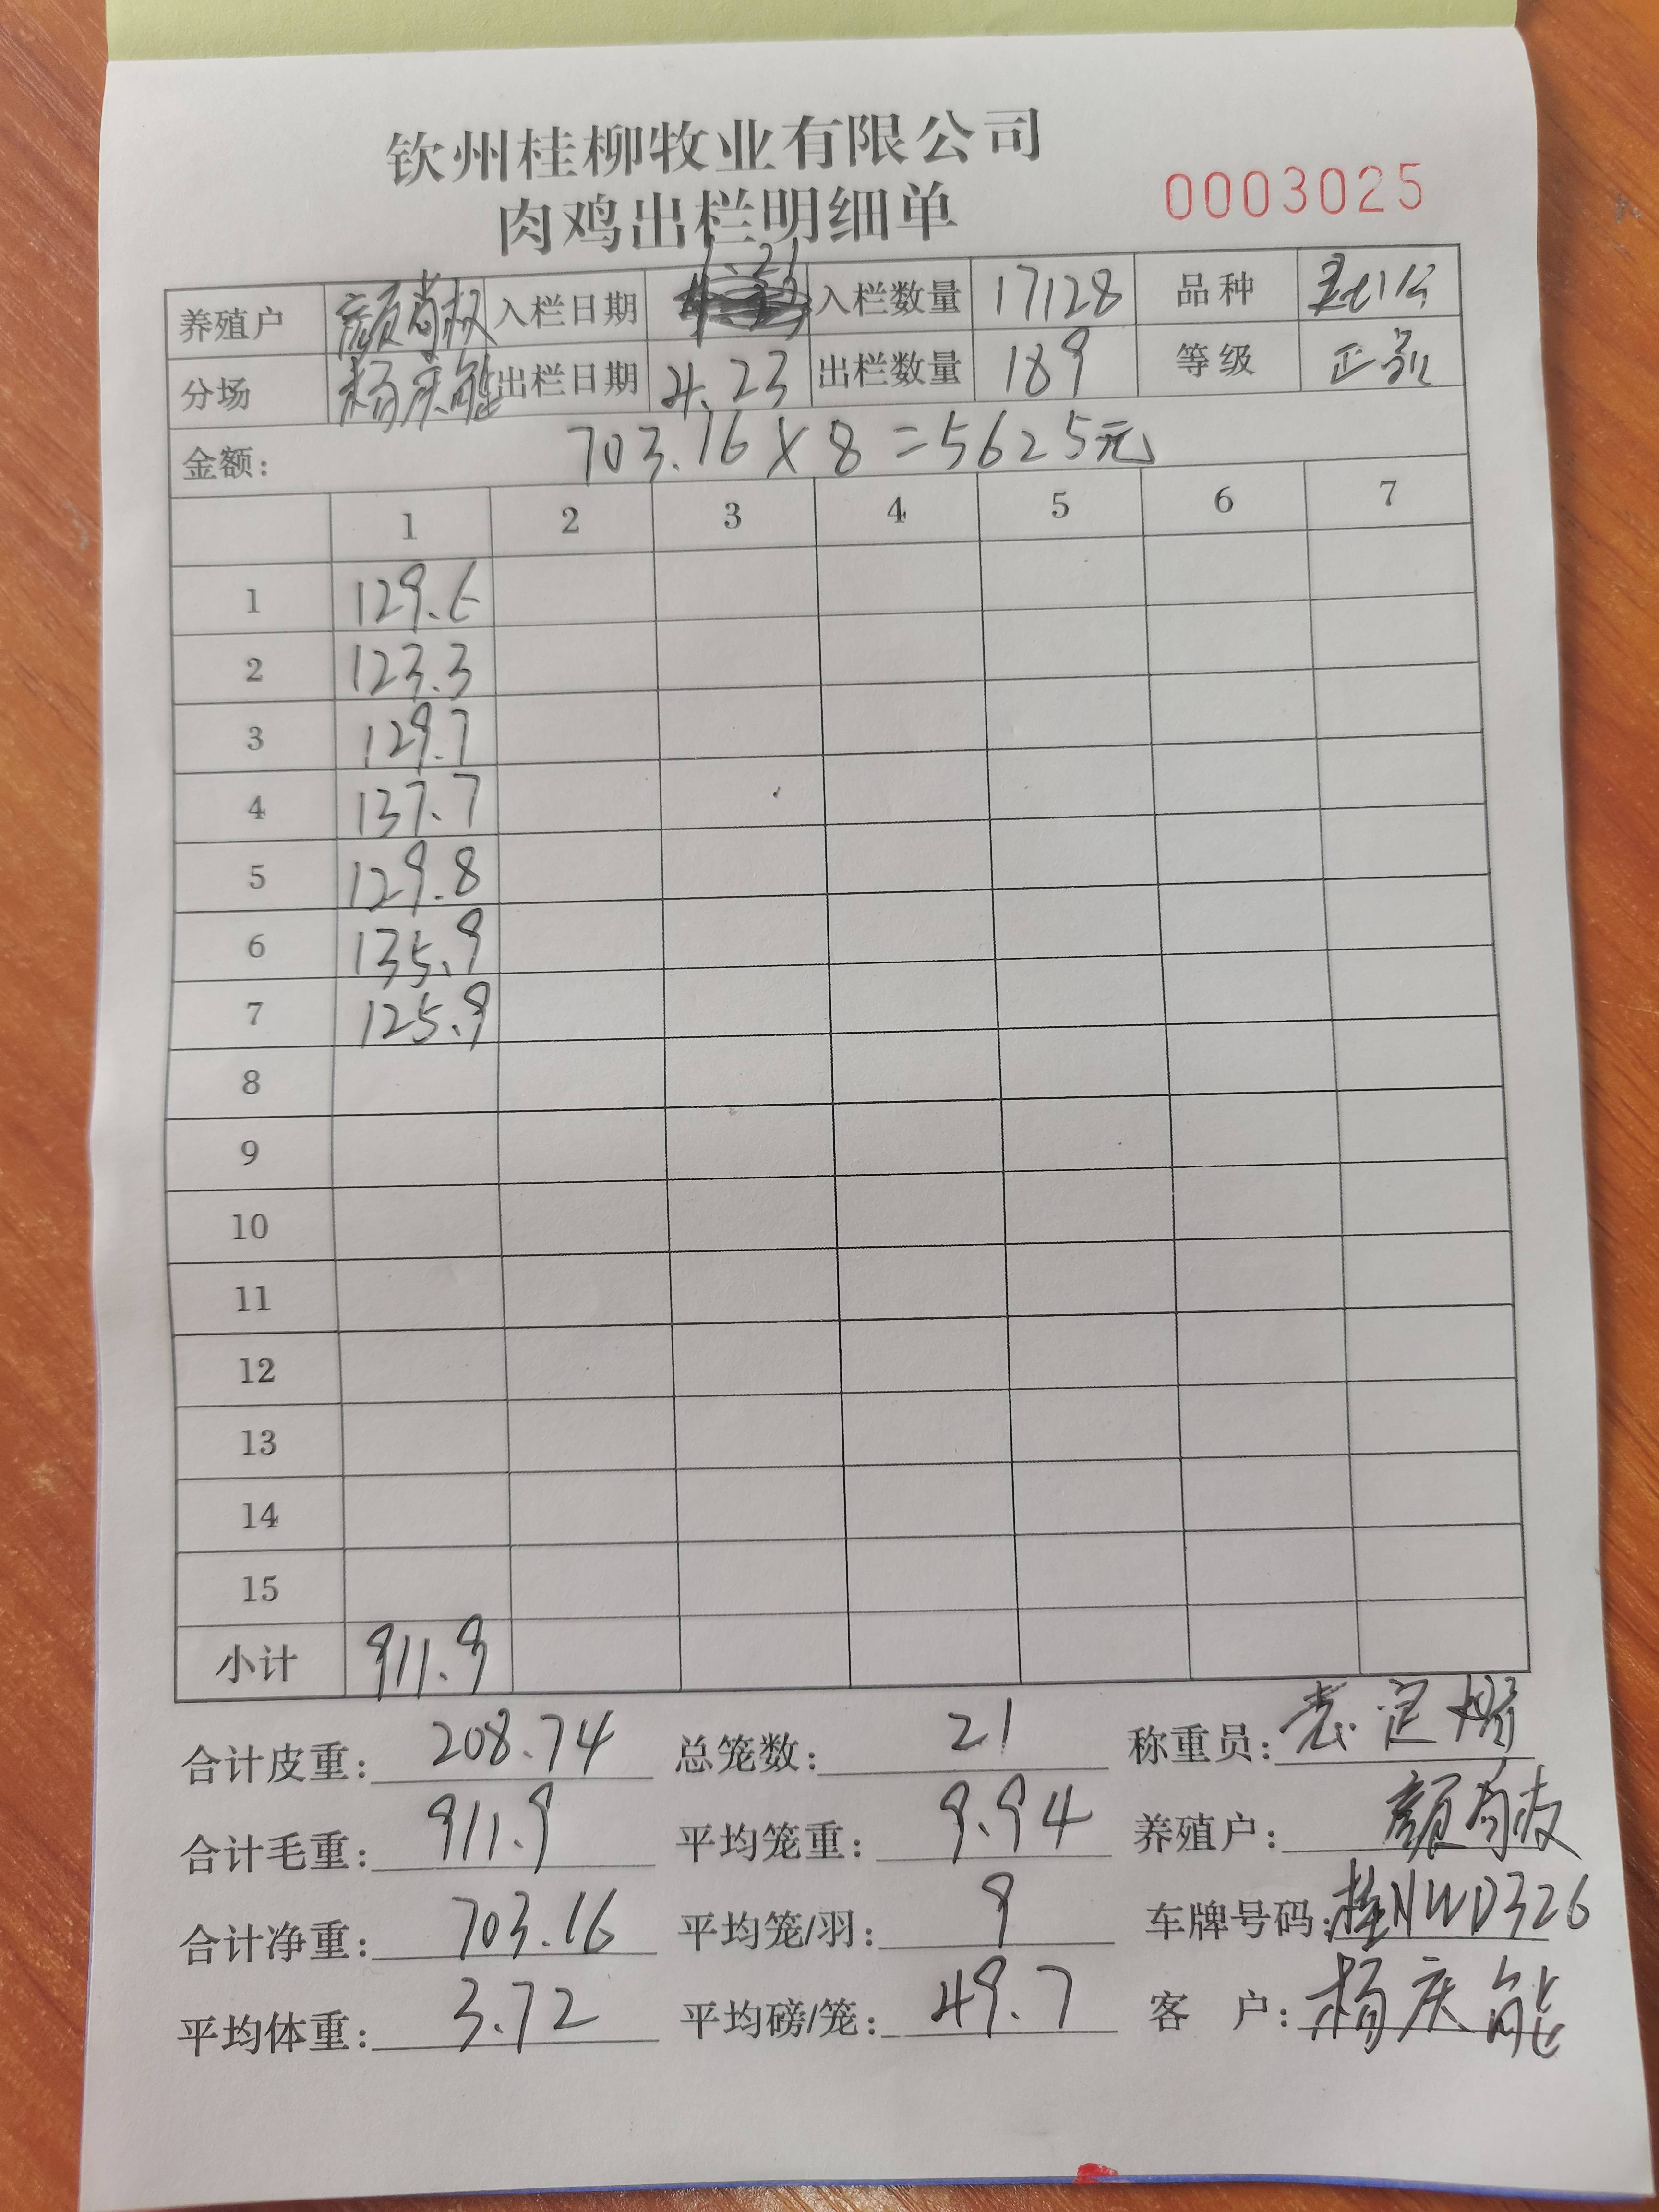 钦州桂柳牧业有限公司
肉鸡出栏明细单 0003025
养殖户 颜 入栏日期 1.21 入栏数量 17128 品种
分场 杨庆能 出栏日期 4.23 出栏数量 189 等级 正品
金额: 703.16×8=5625元
1 2 3 4 5 6 7
1 129.6
2 123.3
3 129.7
4 137.7
5 129.8
6 135.9
7 125.9
8
9
10
11
12
13
14
15
小计 911.9
合计皮重: 208.74 总笼数: 21 称重员:
合计毛重: 911.9 平均笼重: 9.94 养殖户: 颜
合计净重: 703.16 平均笼/羽: 9 车牌号码: 桂NWD326
平均体重: 3.72 平均磅/笼: 49.7 客 户: 杨庆能